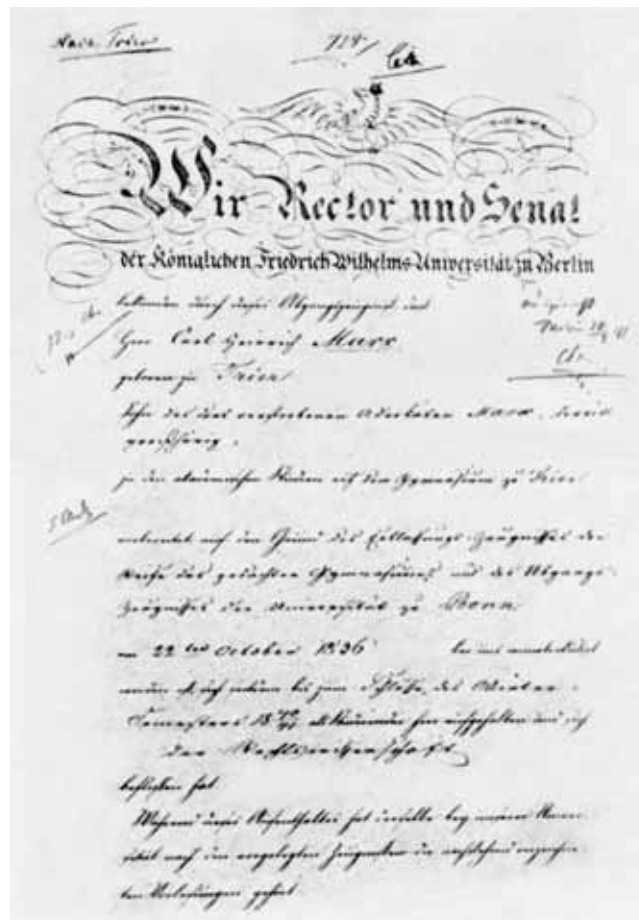 728/
Wir Rector und Senat
der Königlichen Friedrich Wilhelms Universität zu Berlin
bekennen durch dieses Abgangszeugniß daß
Herr Carl Heinrich Marx
geboren zu Trier
Sohn des verstorbenen Advokaten Marx
zu den akademischen Studien auf dem Gymnasium zu Trier
vorbereitet auf den Grund des Entlassungs-Zeugnisses der
Reife des gedachten Gymnasiums und des Abgangs
Zeugnisses der Universität zu Bonn
am 22ten October 1836 bei uns immatriculirt
worden ist, sich seitdem bis zum Schlusse des Winter-
Semesters 18 als Studirender hier aufgehalten und sich
der Rechtswissenschaft
beflissen hat.
Während dieses Aufenthaltes hat derselbe bey unserer Univer-
sität nach den vorgelegten Zeugnissen die nachstehend verzeichne-
ten Vorlesungen gehört.